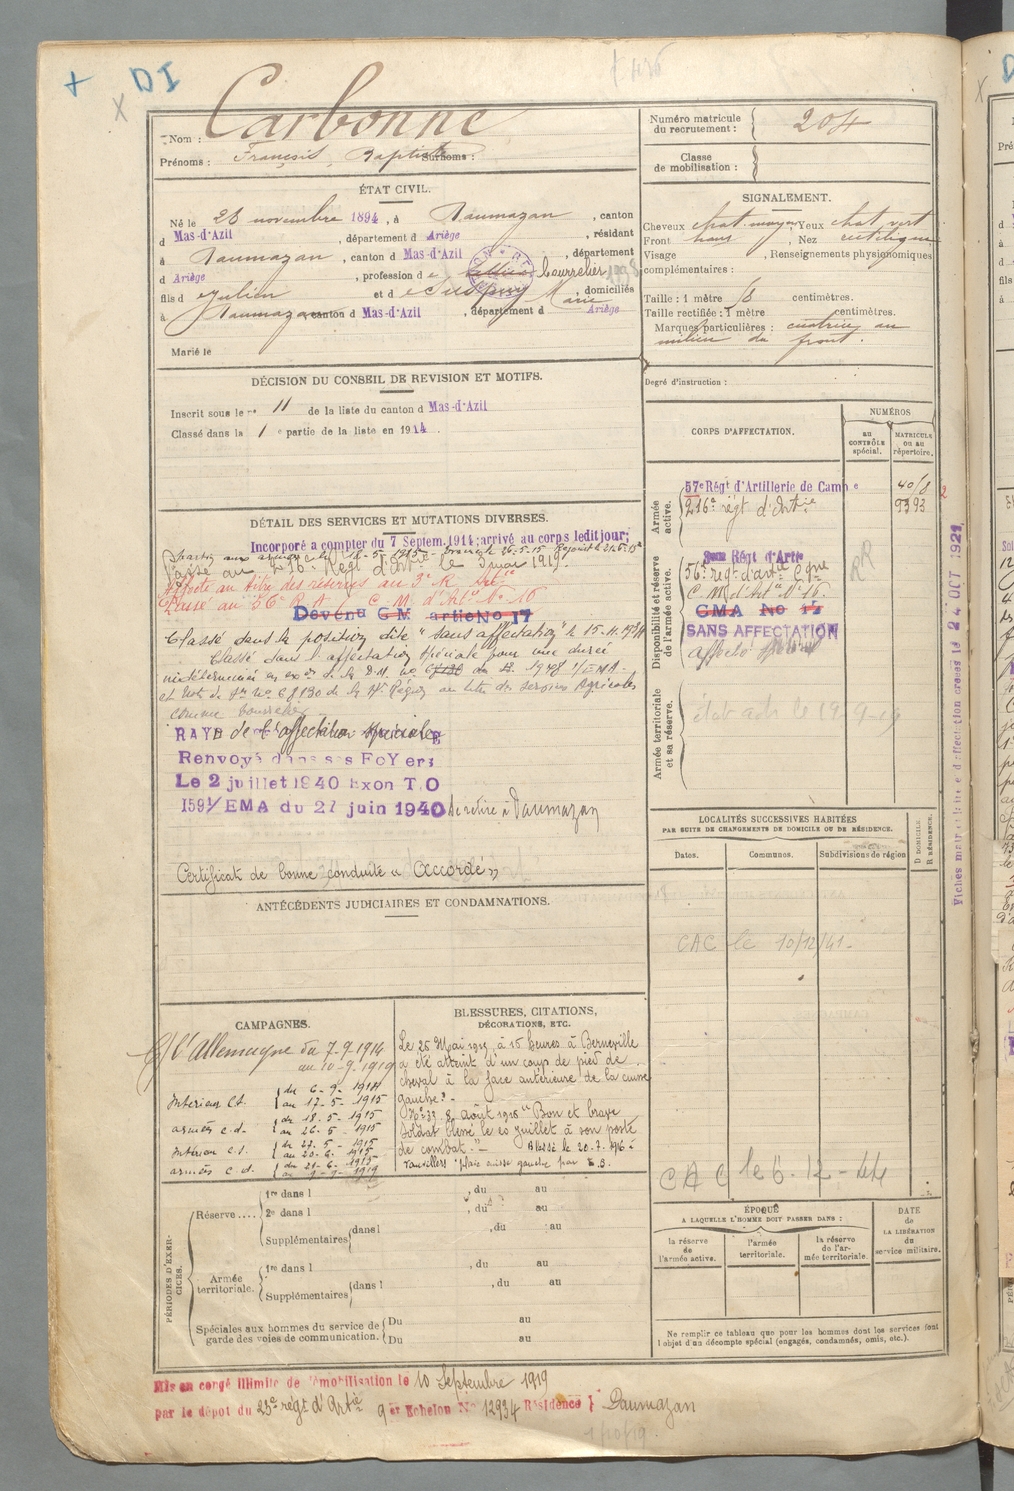 DI
Nom : Carbonne
Prénoms : François, Baptiste Surnoms :
Numéro matricule du recrutement : 204
Classe de mobilisation :
ÉTAT CIVIL.
Né le 28 novembre 1894, à Daumazan, canton
d Mas-d'Azil, département d Ariège, résidant
à Daumazan, canton d Mas-d'Azil, département
d Ariège, profession d bourrelier
fils d Julien et d Marie, domiciliés
à Daumazan canton d Mas-d'Azil, département d Ariège
Marié le
SIGNALEMENT.
Cheveux chat. moyen, Yeux chat vert
Front, Nez rectiligne
Visage, Renseignements physionomiques
complémentaires :
Taille : 1 mètre centimètres.
Taille rectifiée : 1 mètre centimètres.
Marques particulières : cicatrice au
milieu du front.
Degré d'instruction :
DÉCISION DU CONSEIL DE REVISION ET MOTIFS.
Inscrit sous le n° 11 de la liste du canton d Mas-d'Azil
Classé dans la 1 e partie de la liste en 1914.
CORPS D'AFFECTATION.
NUMÉROS
au CONTRÔLE spécial.
MATRICULE ou au répertoire.
Armée active.
57e Régt d'Artillerie de Camp e
216e régt d'Artie 9393
Disponibilité et réserve de l'armée active.
Régt d'Artie
56e régt d'artie Cgne
C.M. d'Art ie N° 16.
CMA No
SANS AFFECTATION
RR
Armée territoriale et sa réserve.
DÉTAIL DES SERVICES ET MUTATIONS DIVERSES.
Incorporé a compter du 7 Septem. 1914; arrivé au corps ledit jour;
Passé au 216e Régt d'Artie le 3 mai 1919.
Affecté au titre des réserves au 3e R. Art ie
Passé au 56e R A C C M d'Art ie No 16
Devenu C M artie No 17
Classé dans la position dite "sans affectation" le 15-11-1934
Classé dans l'affectation spéciale pour une durée
indéterminée en exon de la D.M. no du 1/EMA.
et Note de Sce No 68130 de la 17e Région au titre des services Agricoles
comme bourrelier
RAYE de l'affectation spéciale
Renvoyé dans ses FoYers
Le 2 juillet 1940 Exon T.O
1591/EMA du 27 juin 1940 Se retire à Daumazan
Certificat de bonne conduite "Accordé"
ANTÉCÉDENTS JUDICIAIRES ET CONDAMNATIONS.
LOCALITÉS SUCCESSIVES HABITÉES
PAR SUITE DE CHANGEMENTS DE DOMICILE OU DE RÉSIDENCE.
Dates.
Communes.
Subdivisions de région
D DOMICILE.
R RÉSIDENCE.
CAC le 10/12/41.
CAC le 6-12-44
CAMPAGNES.
C/ l'Allemagne du 7-9-1914
au 10-9-1919
Intérieur C.S. du 6-9-1914
au 17-5-1915
armées c.d. du 18-5-1915
au 26-5-1915
Intérieur c.s. du 27-5-1915
au 20-6-1915
armées c d. du 21-6-1915
au 9-9-1919
BLESSURES, CITATIONS, DÉCORATIONS, ETC.
Le 25 Mai 1915, à 15 heures à Berneville
a été atteint d'un coup de pied de
cheval à la face antérieure de la cuisse
gauche. -
No 33. 8 août 1918 "Bon et brave
soldat blessé le 20 juillet à son poste
de combat." - Blessé le 20.7.1916 à
plaie cuisse gauche par
PÉRIODES D'EXERCICES.
Réserve ....
1re dans l, du au
2e dans l, du au
Supplémentaires dans l, du au
Armée territoriale.
1re dans l, du au
Supplémentaires dans l, du au
Spéciales aux hommes du service de garde des voies de communication.
Du au
Du au
ÉPOQUE
A LAQUELLE L'HOMME DOIT PASSER DANS :
la réserve de l'armée active.
l'armée territoriale.
la réserve de l'armée territoriale.
DATE de LA LIBÉRATION du service militaire.
Ne remplir ce tableau que pour les hommes dont les services font
l'objet d'un décompte spécial (engagés, condamnés, omis, etc.).
Mis en congé illimité de démobilisation le 10 Septembre 1919
par le dépôt du 23e régt d'Artie 9 er Echelon No 12934 Résidence } Daumazan